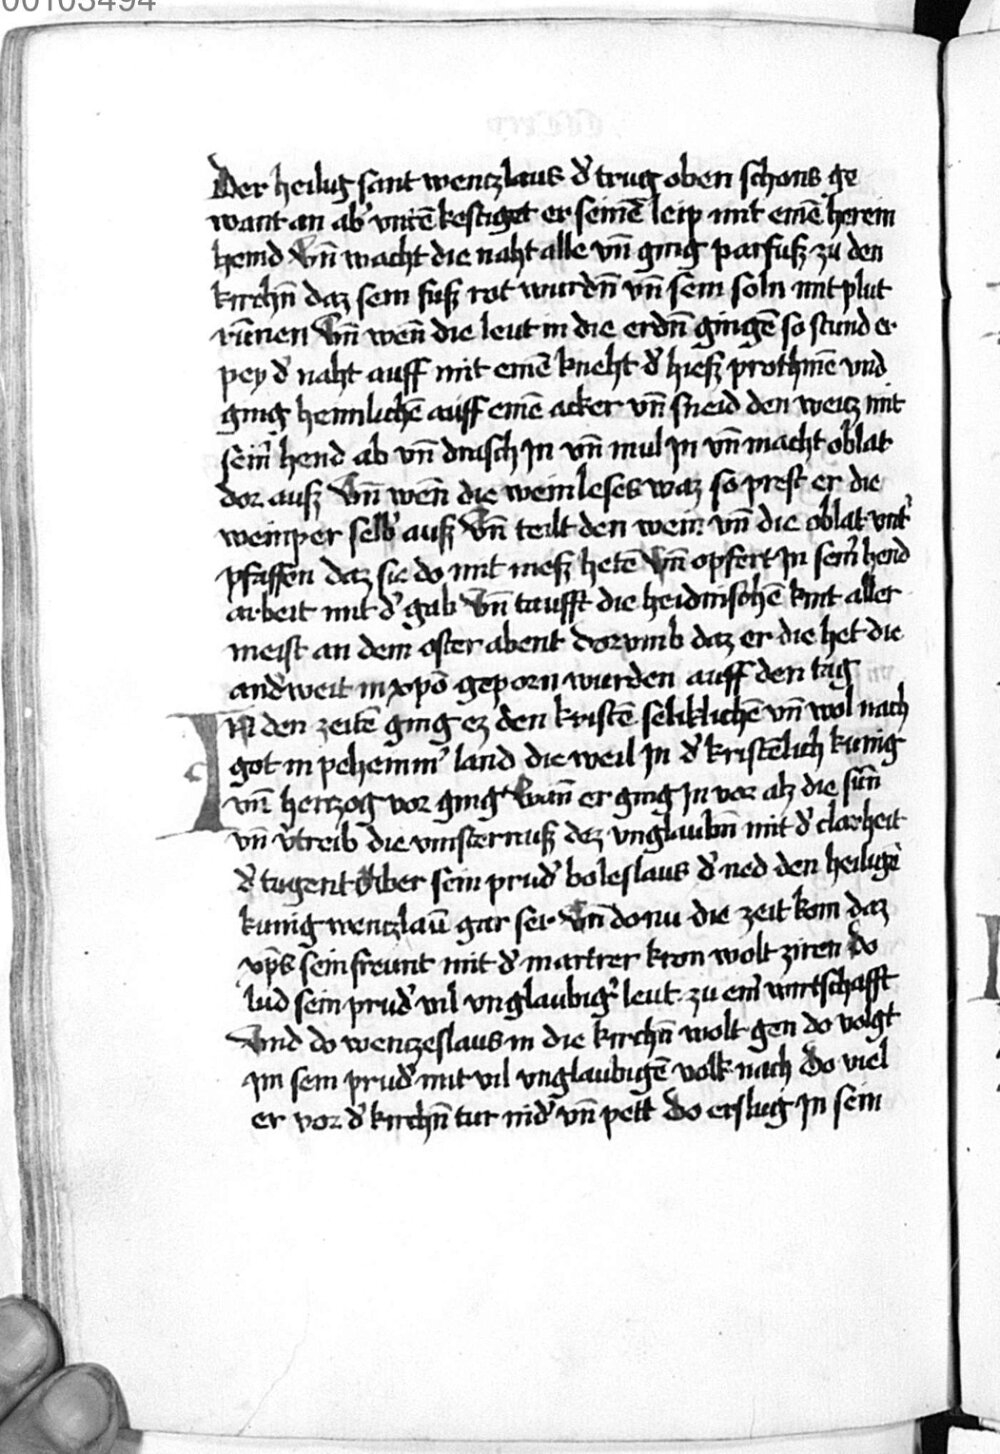 00103494
Der heilig sant wenczlaus d' trug oben schons ge
want an ab' vntē kestiget er seinē leip mit einē herein
hemd Vn̄ wacht die naht alle vn̄ ging parfuß zu den
kirchn̄ daz sein fuß rot wurdn̄ vn̄ sein soln mit plut
rūnen Vn̄ wen̄ die leut in die erdn̄ gingē so stund er
pey d' naht auff mit einē kneht d' hieß prothinē vnd
ging heimlichē auff einē acker vn̄ sneid den weicz mit
sein̄ hend ab vn̄ drasch In vn̄ mul In vn̄ macht oblat
dor auß Vn̄ wen̄ die weinleses waz so prest er die
weinper selb' auß Vn̄ teilt den wein vn̄ die oblat vnt'
pfaffen daz sie do mit meß hetē Vn̄ opfert In sein̄ hend
arbeit mit d' gab Vn̄ taufft die heidinischē kint aller
meist an dem oster abent dorvmb daz er die het die
and'weit in xp̄o geporn wurden auff den tag
In den zeitē ging ez den kristē seliklichē vn̄ wol nach
got in pehemm' land die weil In d' kristēlich kunig
vn̄ herczog vor ging Wan̄ er ging In vor alz die sun̄
vn̄ v'treib die vinsternuß dez vnglaubn̄ mit d' clarheit
d' tugent Aber sein prud' boleslaus d' neid den heiligē
kunig wenczlaū gar ser Vn̄ do nu die zeit kom daz
xp̄s sein freunt mit d' martrer kron wolt ziren Do
lud sein prud' vil vnglaubig' leut zu ein' wirtschafft
Vnd do wenczeslaus in die kirchn̄ wolt gen do volgt
Im sein prud' mit vil vnglaubigē volk nach Do viel
er vor d' kirchn̄ tur nid' vn̄ pett Do erslug In sein